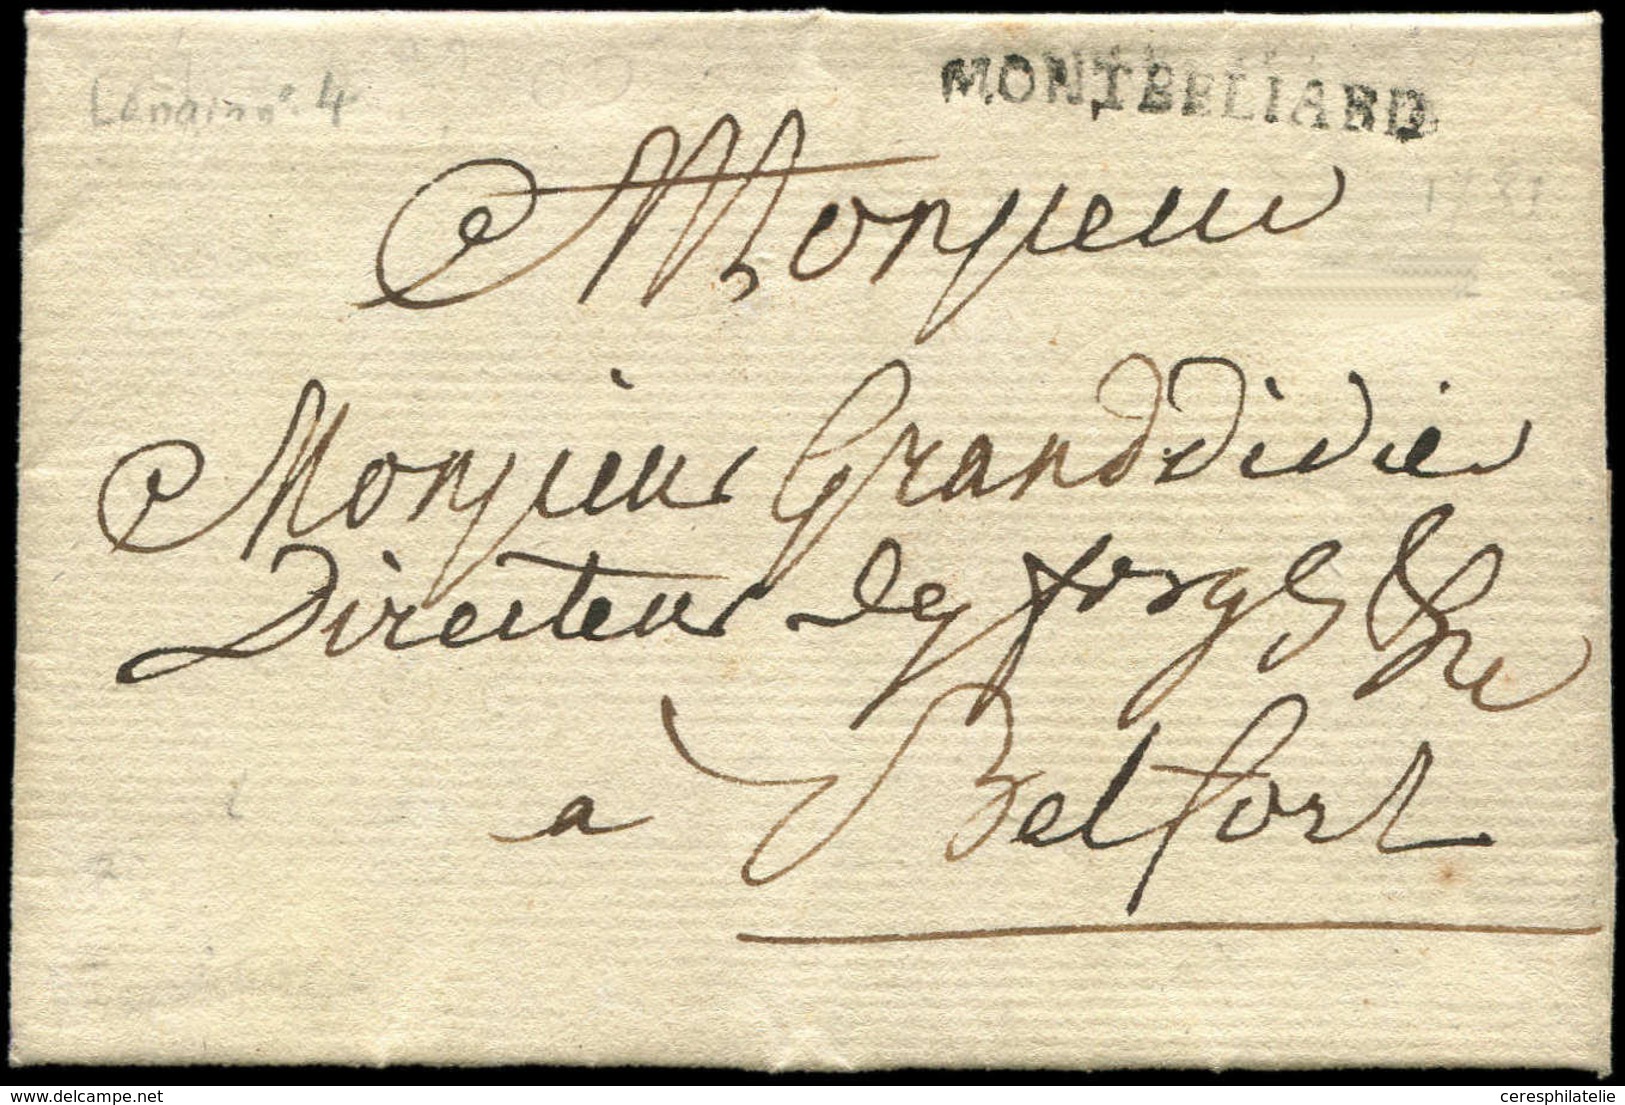 MONTBELIARD
n° 4
Monsieur
Monsieur Granddidier
Directeur des forges &c
a Belfort
delcampe.net
ceresphilatelie